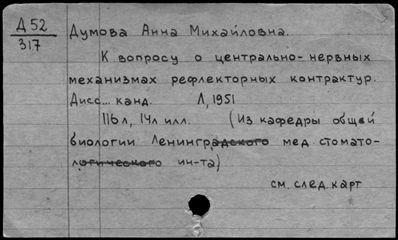 Д 52
317
Думова Анна Михайловна.
К вопросу о центрально-нервных
механизмах рефлекторных контрактур.
Дисс... канд. Л, 1951
116л, 14л илл. (Из кафедры общей
биологии Ленинградского мед. стомато-
логического ин-та)
см. след. карт